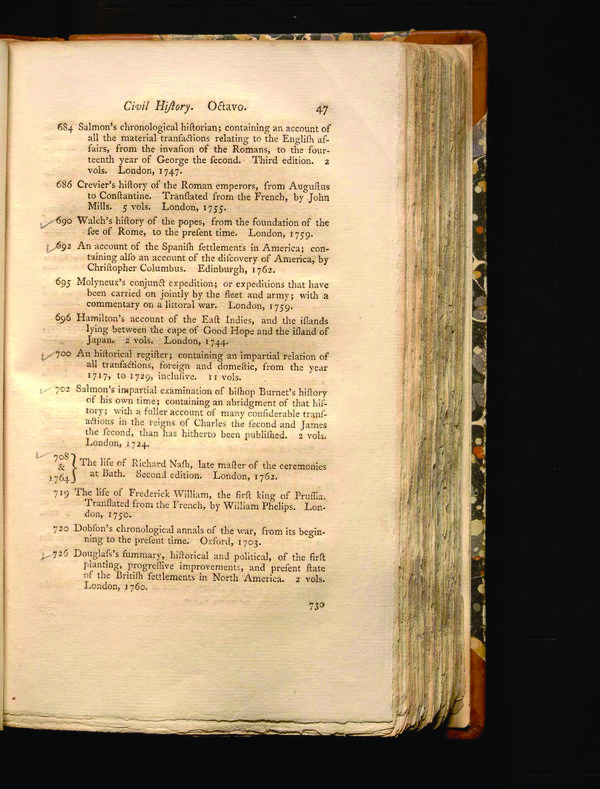 Civil Hiſtory. Octavo. 47
684 Salmon's chronological hiſtorian; containing an account of
all the material tranſactions relating to the Engliſh aſ-
fairs, from the invaſion of the Romans, to the four-
teenth year of George the ſecond. Third edition. 2
vols. London, 1747.
686 Crevier's hiſtory of the Roman emperors, from Auguſtus
to Conſtantine. Tranſlated from the French, by John
Mills. 5 vols. London, 1755.
690 Walch's hiſtory of the popes, from the foundation of the
ſee of Rome, to the preſent time. London, 1759.
692 An account of the Spaniſh ſettlements in America; con-
taining alſo an account of the diſcovery of America, by
Chriſtopher Columbus. Edinburgh, 1762.
695 Molyneux's conjunct expedition; or expeditions that have
been carried on jointly by the fleet and army; with a
commentary on a littoral war. London, 1759.
696 Hamilton's account of the Eaſt Indies, and the iſlands
lying between the cape of Good Hope and the iſland of
Japan. 2 vols. London, 1744.
700 An hiſtorical regiſter; containing an impartial relation of
all tranſactions, foreign and domeſtic, from the year
1717, to 1729, incluſive. 11 vols.
702 Salmon's impartial examination of biſhop Burnet's hiſtory
of his own time; containing an abridgment of that hiſ-
tory; with a fuller account of many conſiderable tranſ-
actions in the reigns of Charles the ſecond and James
the ſecond, than has hitherto been publiſhed. 2 vols.
London, 1724.
708
&
1764
} The life of Richard Naſh, late maſter of the ceremonies
at Bath. Second edition. London, 1762.
719 The life of Frederick William, the firſt king of Pruſſia.
Tranſlated from the French, by William Phelips. Lon-
don, 1750.
720 Dobſon's chronological annals of the war, from its begin-
ning to the preſent time. Oxford, 1703.
726 Douglaſs's ſummary, hiſtorical and political, of the firſt
planting, progreſſive improvements, and preſent ſtate
of the Britiſh ſettlements in North America. 2 vols.
London, 1760.
730